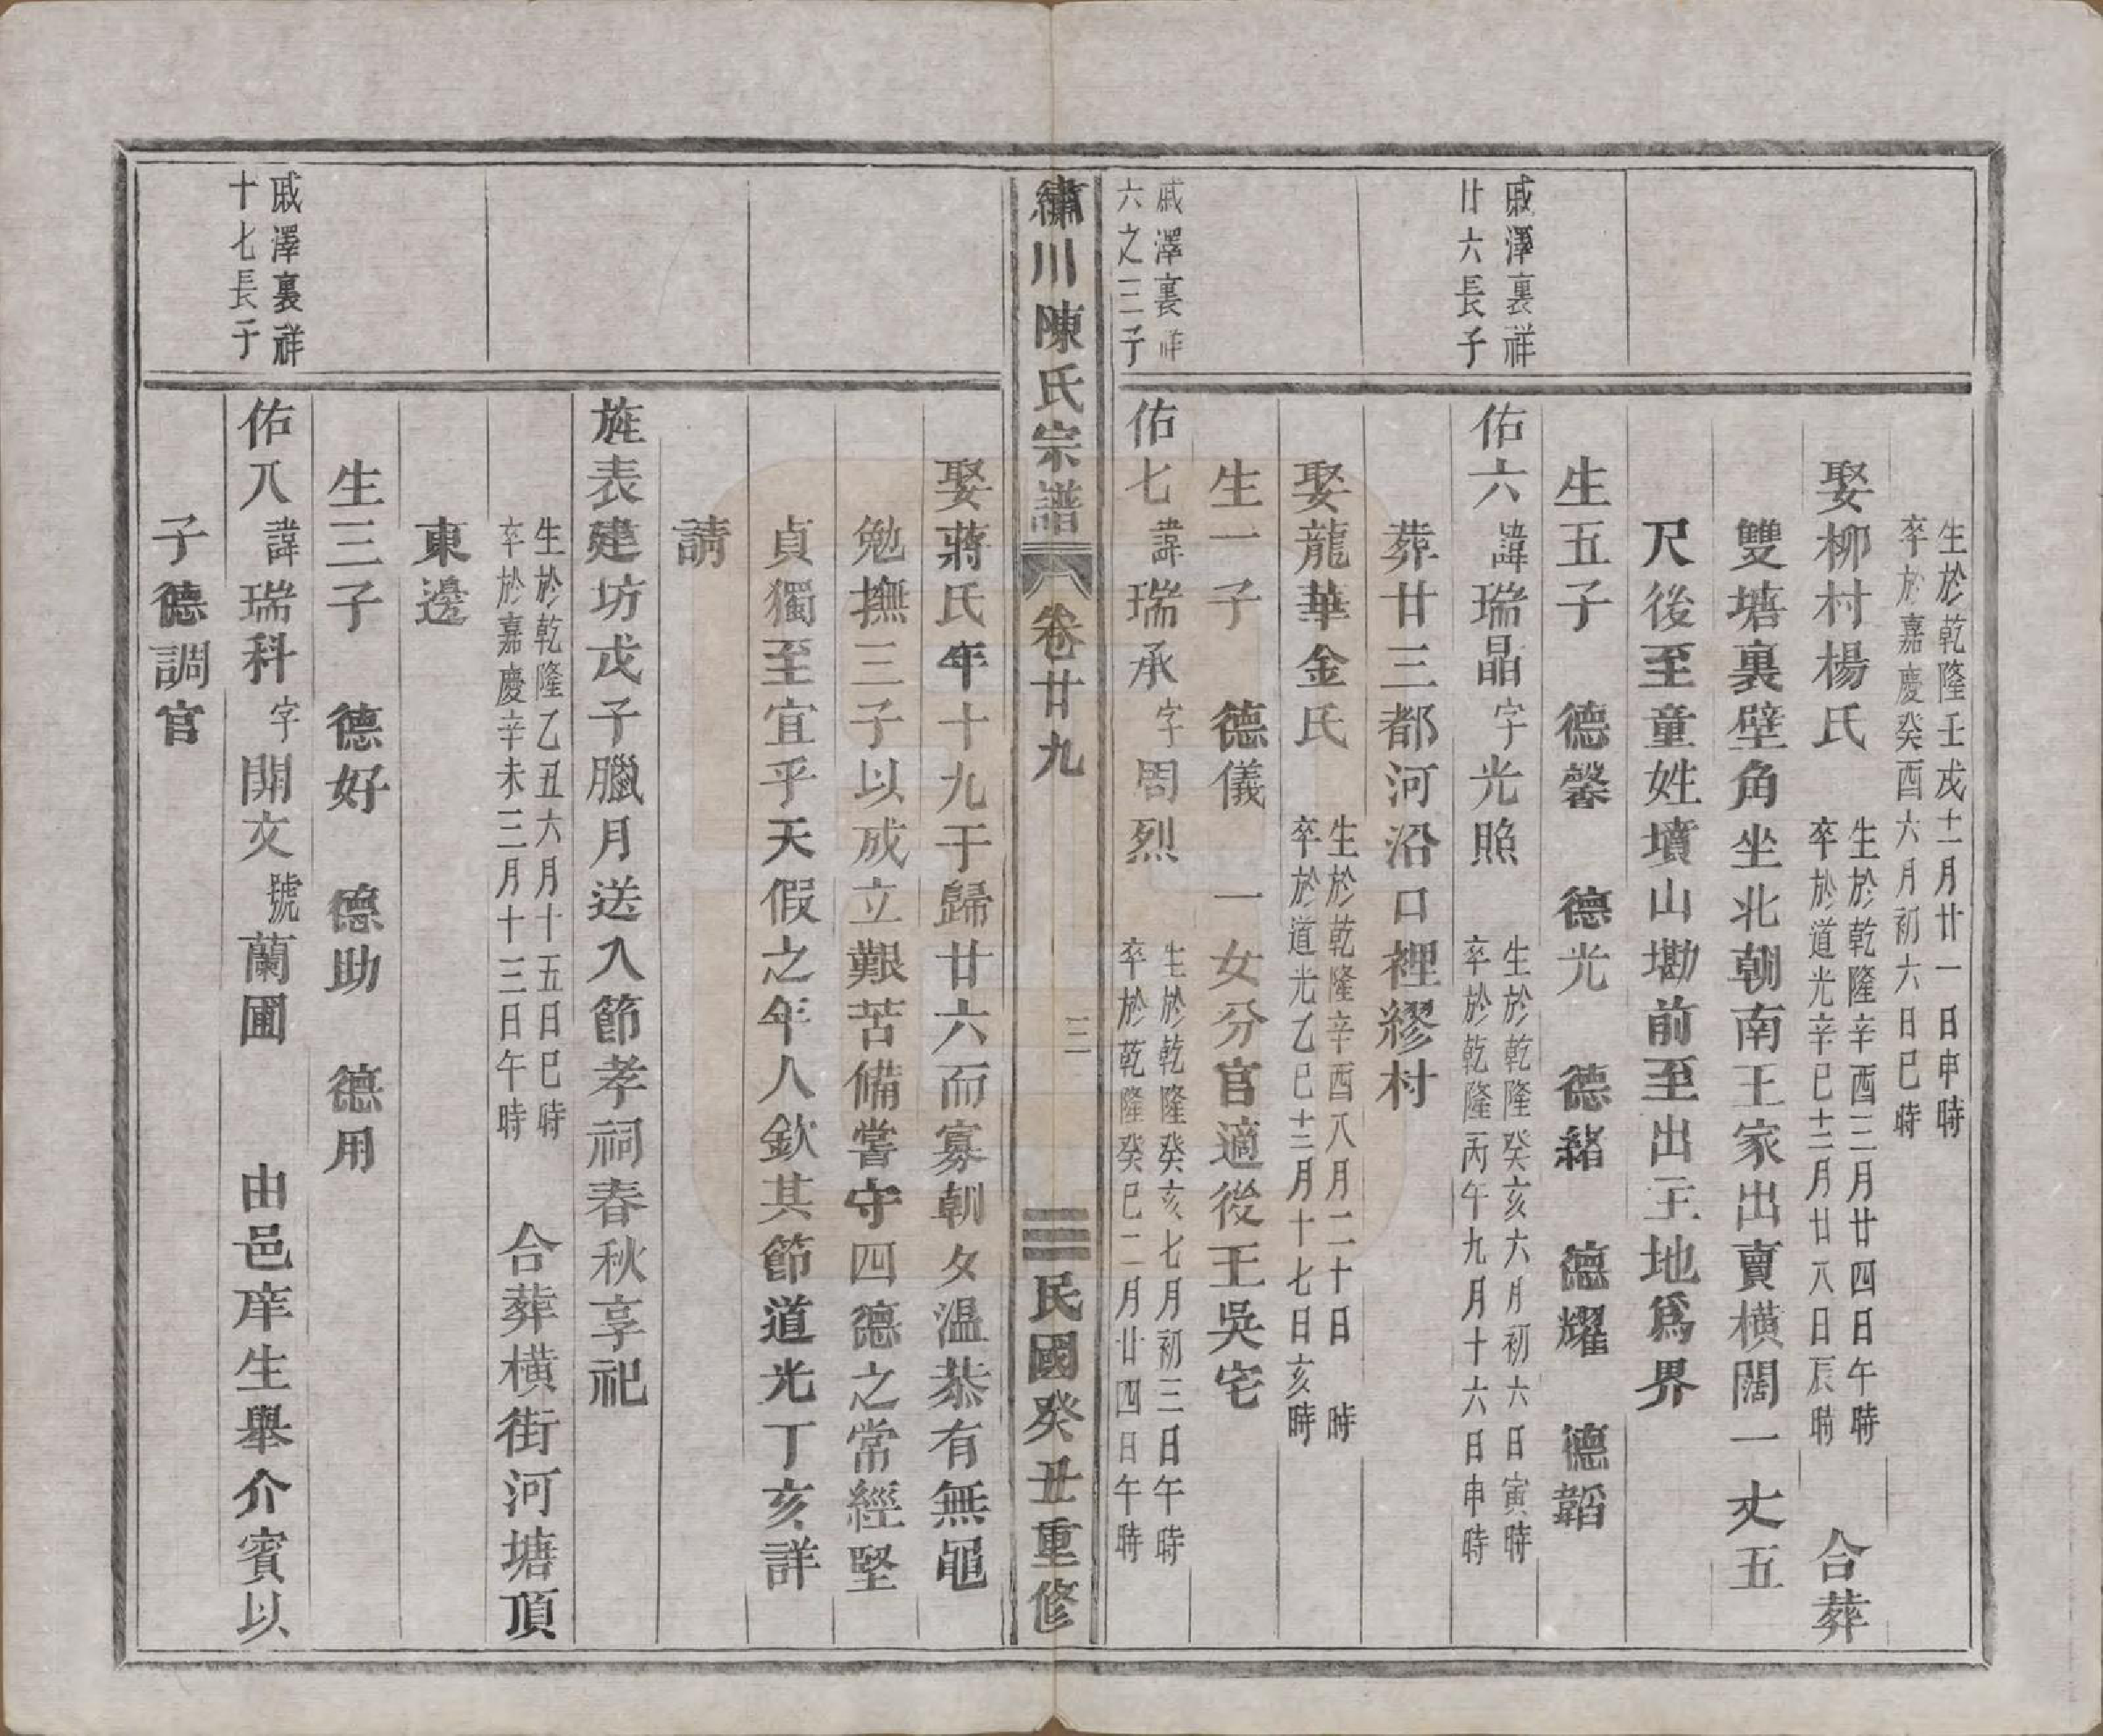 生於乾隆壬戌十一月廿一日申時
卒於嘉慶癸酉六月初六日巳時
娶柳村楊氏
生於乾隆辛酉三月廿四日午時
卒於道光辛巳十二月廿八日辰時
合葬
雙塘裏壁角坐北朝南王家出賣橫闊一丈五
尺後至童姓墳山墈前至出主地爲界
生五子　德馨　德光　德緒　德耀　德韜
戚澤裏祥
廿六長子
佑六諱瑞晶字光照
生於乾隆癸亥六月初六日寅時
卒於乾隆丙午九月十六日申時
葬廿三都河沿口裡繆村
娶龍華金氏
生於乾隆辛酉八月二十日　時
卒於道光乙巳十二月十七日亥時
生一子　德儀　一女分官適後王吳宅
戚澤裏祥
六之三子
佑七諱瑞承字周烈
生於乾隆癸亥七月初三日午時
卒於乾隆癸巳二月廿四日午時
繡川陳氏宗譜
卷廿九
三
民國癸丑重修
娶蔣氏年十九于歸廿六而寡朝夕溫恭有無黽
勉撫三子以成立艱苦備嘗守四德之常經堅
貞獨至宜乎天假之年人欽其節道光丁亥詳
請
旌表建坊戊子臘月送入節孝祠春秋享祀
生於乾隆乙丑六月十五日巳時
卒於嘉慶辛未三月十三日午時
合葬橫街河塘頂
東邊
生三子　德好　德助　德用
戚澤裏祥
十七長子
佑八諱瑞科字開文號蘭圃　由邑庠生舉介賓以
子德調官